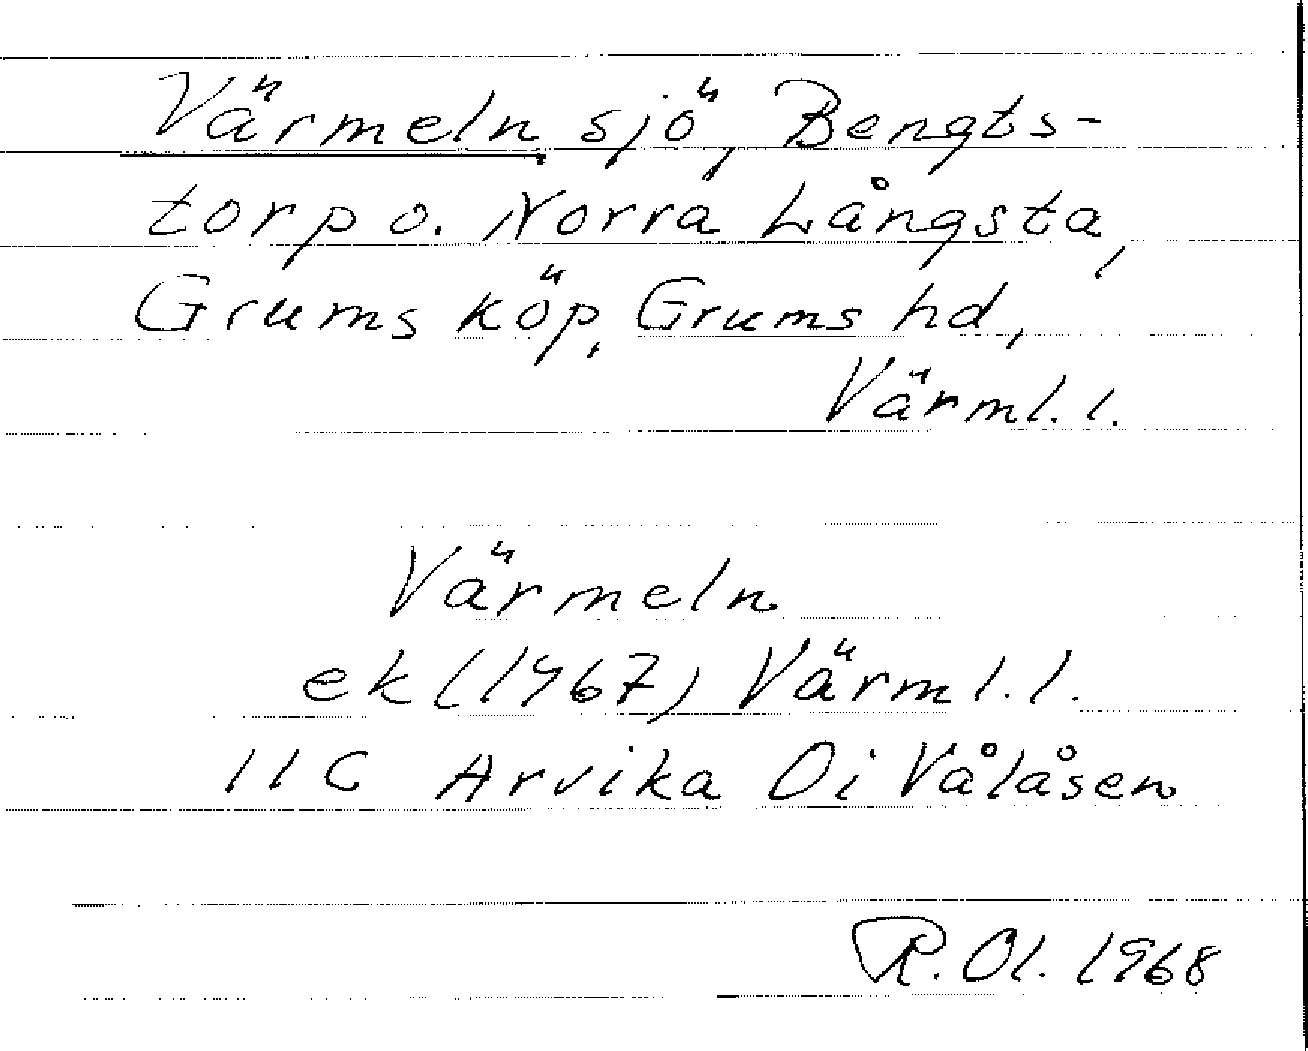 Värmeln, sjö, Bengts-
torp o. Norra Långsta,
Grums köp, Grums hd,
Värml. l.
Värmeln
ek (1967) Värml. l.
11C Arvika 0i Vålåsen
R. Ol. 1968